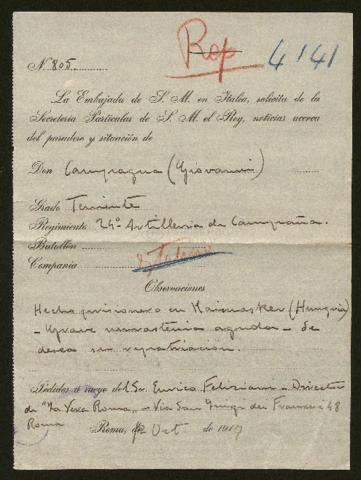 Rep
4141
N.º 805
La Embajada de S. M. en Italia, solicita de la
Secretería Particular de S. M. el Rey, noticias acerca
del paradero y situación de
Don Campagna (Giovanni)
Grado Teniente
Regimiento 24º Artilleria de Campaña.
Batallón
Compañía
Observaciones
Hecho prisionero en Haimasker (Hungria)
- Grave neurastenia aguda - Se
desea su repatriacion.
Pedidos a ruego del Sr. Enrico Feliziani - Director
de "La Vera Roma" - Via San Luigi dei Francesi 48
Roma
Roma, 12 Oct. de 1917